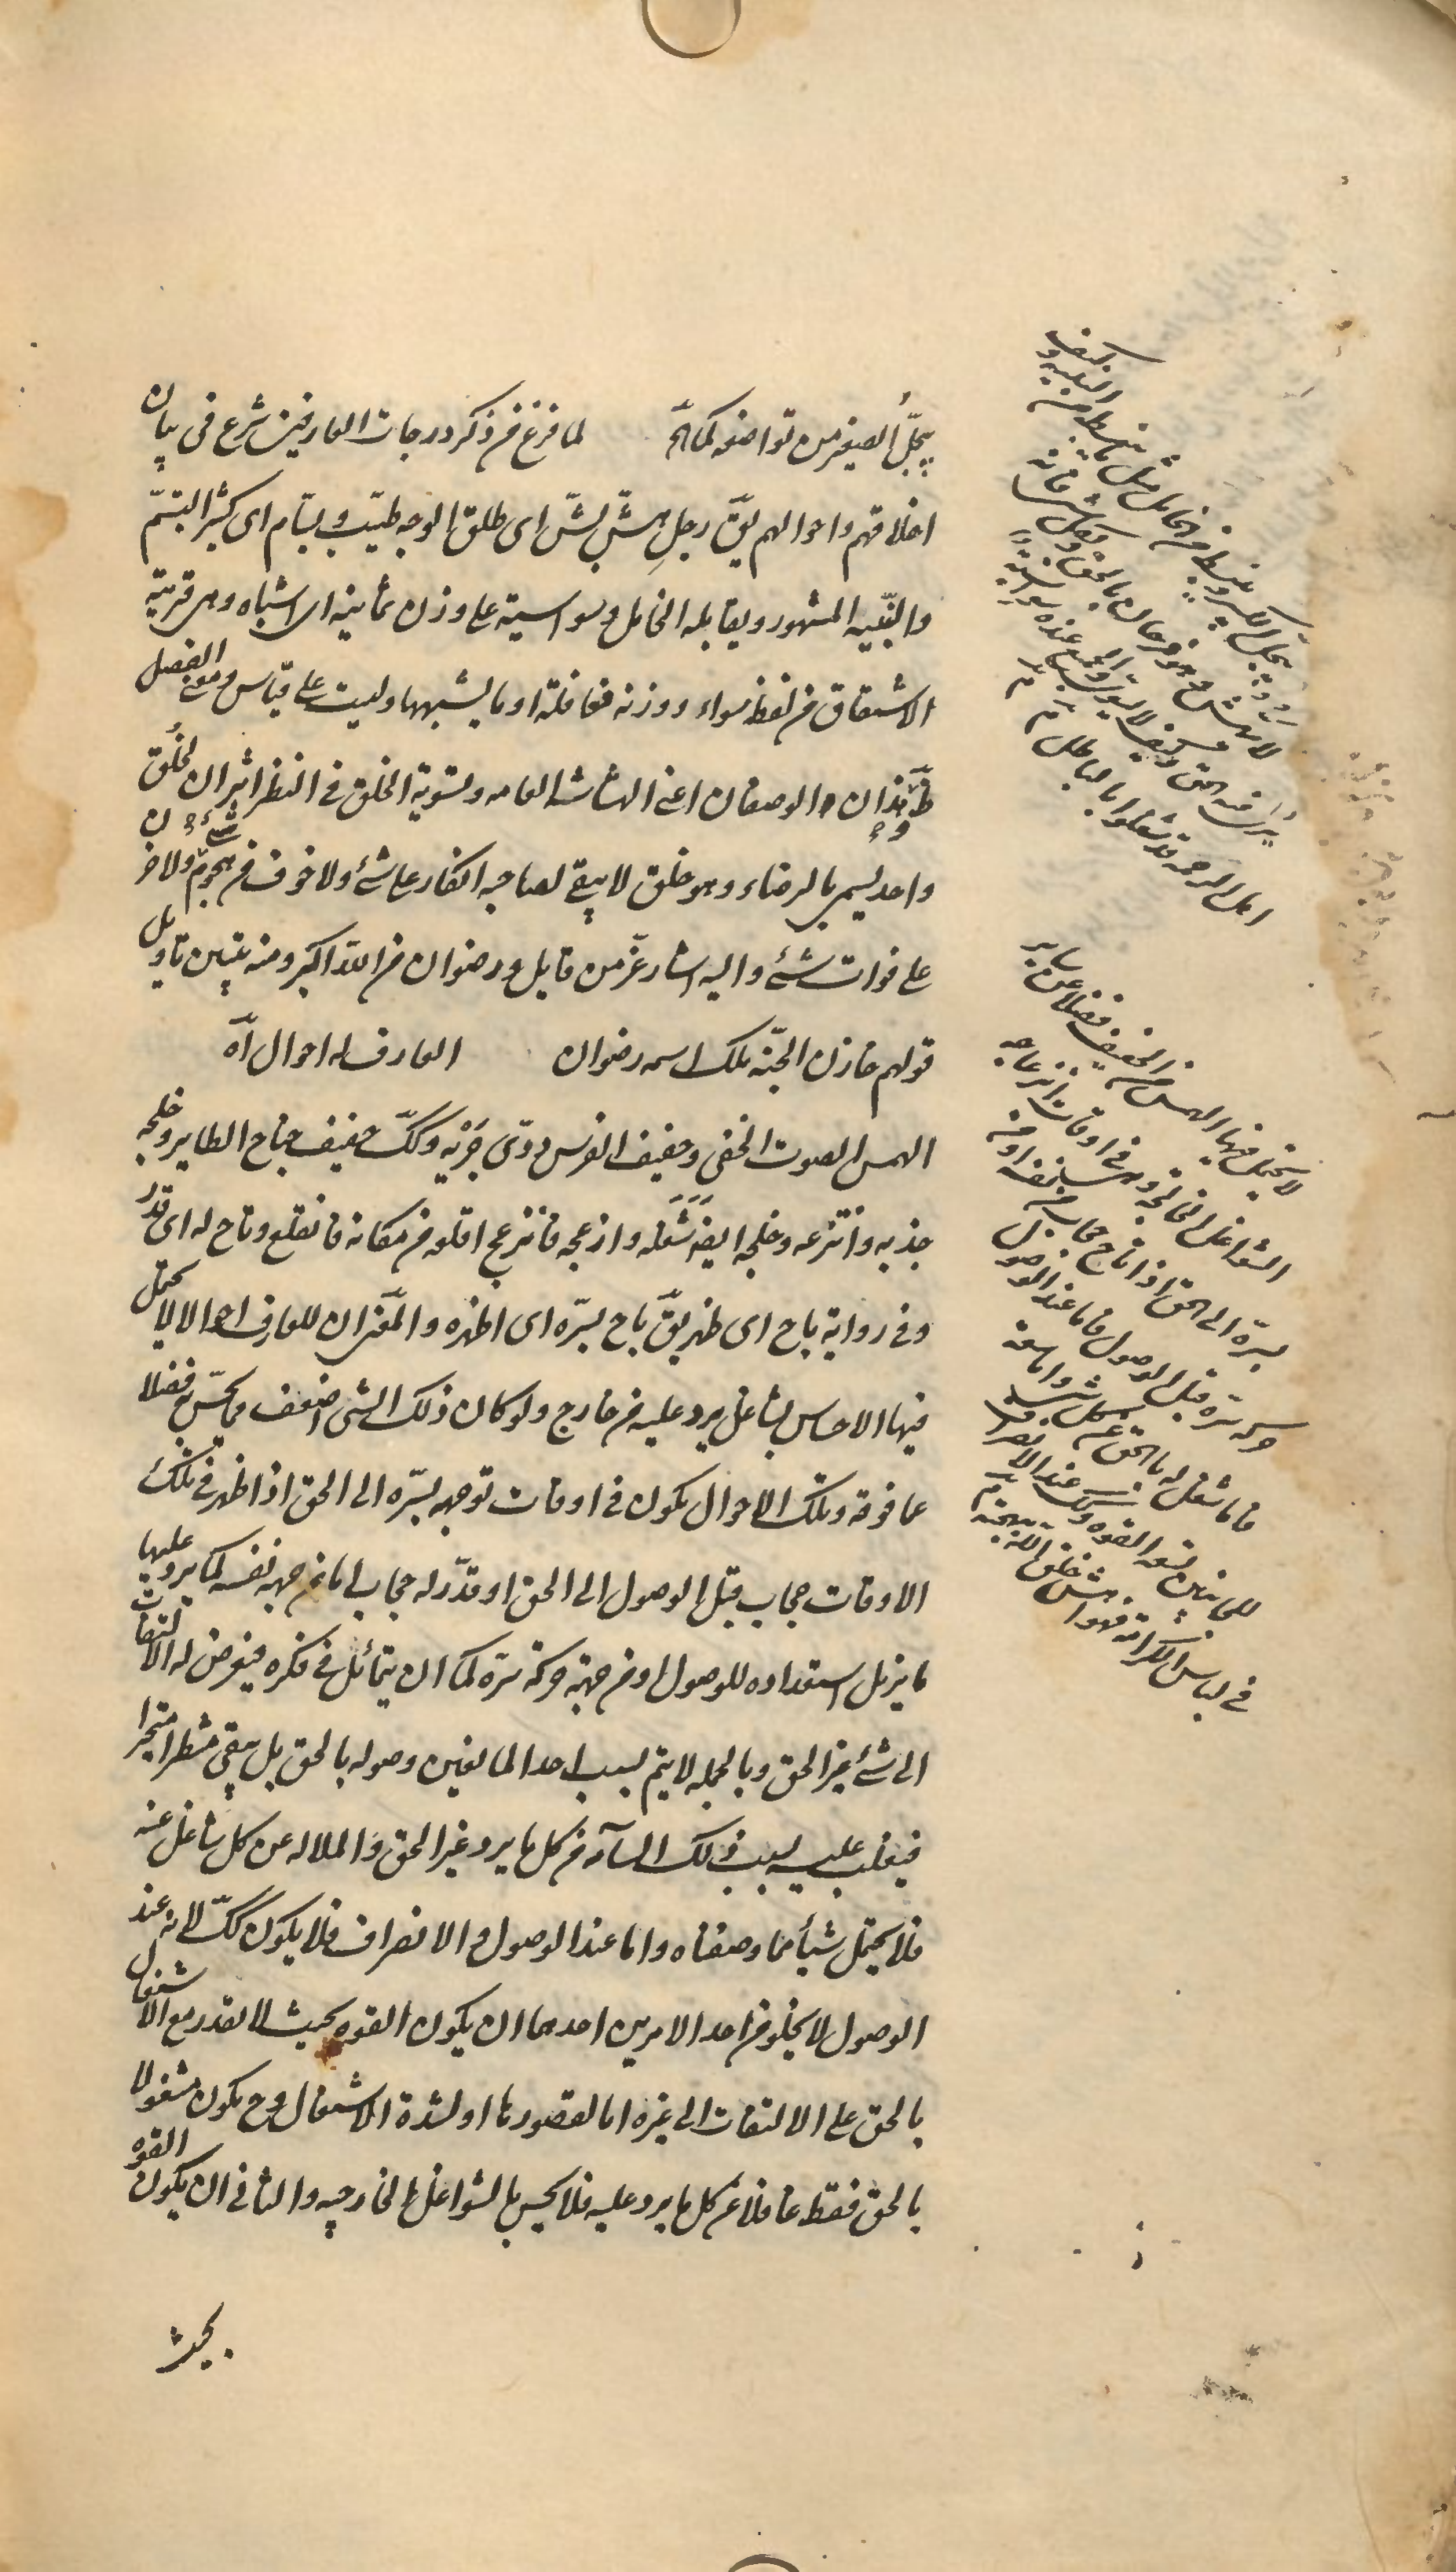 يبجّل الصغير من تواضعه كما آه لما فرغ من ذكر درجات العارفين شرع فى بيان
اخلاقهم واحوالهم يقّ رجل هشّ بشّ اى طلق الوجه طيّب وبسّام اى كثير التبسّم
والنبيه المشهور ويقابله الخامل وسواسية على وزن ثمانية اى اشباه وهى قريبة
الاشتقاق من لفظ سواء ووزنه فعافلة او ما يشبهها وليست على قياس ومعنى الفصل
ظّ وهذان الوصفان اعنى الهشاشه العامه وتسوية الخلق فى النظر اثران لخُلُق
واحد يسمى بالرضاء وهو خلق لا يبقى لصاحبه انكار على شئ ولا خوف من هجوم شئ ولا حزن
على فوات شئ واليه اشار عزّ من قايل ورضوان من الله اكبر ومنه يتبين تاويل
قولهم خازن الجنّة ملك اسمه رضوان العارف له احوال آه
الهمس الصوت الخفى وحفيف الفرس دوىّ جَرْيِه وكك حفيف جناح الطاير وخلجه
جذبه وانتزعه وخلجه ايضا شَغَلَه وازعجه فانزعج اقلعه من مكانه فانقلع وتاح له اى قدّر
وفى رواية باح اى ظهر يقّ باح بسرّه اى اظهره والمعنى ان للعارف احوالا لا يحتمل
فيها الاحساس بشاغل يرد عليه من خارج ولو كان ذلك الشى اضعف مما يحسّ به فضلا
عما فوقه وتلك الاحوال يكون فى اوقات توجهه بسرّه الى الحق اذا ظهر فى تلك
الاوقات حجاب قبل الوصول الى الحق او قدّر له حجاب اما من جهة نفسه كما يرد عليها
ما يزيل استعداده للوصول او من جهة حركة سرّه كما ان يتمائل فى فكره فيعرض له الالتفات
الى شئ غير الحق وبالجمله لا يتم بسبب احد المانعين وصوله بالحق بل يبقى منتظرا متحيرا
فيغلب عليه بسبب ذلك السآمه من كل ما يرد غير الحق والملاله عن كل شاغل عنه
فلا يحتمل شيأ مما وصفناه واما عند الوصول والانصراف فلا يكون كك لانه عند
الوصول لا يخلو من احد الامرين احدهما ان يكون القوه بحيث لا يقدر مع الاشتغال
بالحق على الالتفات الى غيره اما لقصورها او لشدة الاشتغال وح يكون مشغولا
بالحق فقط غافلا عن كل ما يرد عليه فلا يحس بالشواغل الخارجيه والثانى ان يكون القوه
بحيث
يبجل الكبير وينبسط من الخامل مثل ما ينبسط من النبيه وكيف
لا يهش وهو فرحان بالحق وبكل شئ فانه
يرى فيه الحق وكيف لا يسوّى والجميع عنده سواسية
اهل الرحمه قد شغلوا بالباطل
لا يحتمل فيها الهمس من الحفيف فضلا عن ساير
الشواغل الخالجة وهى فى اوقات انزعاجه
بسرّه الى الحق اذا تاح حجاب من نفسه او من
حركه سرّه قبل الوصول فاما عند الوصول
فاما شغل له بالحق عن كل شئ واما سعة
للجانبين لسعه القوه وكك عند الانصراف
فى لباس الكرامة فهو اهش خلق الله ببهجته